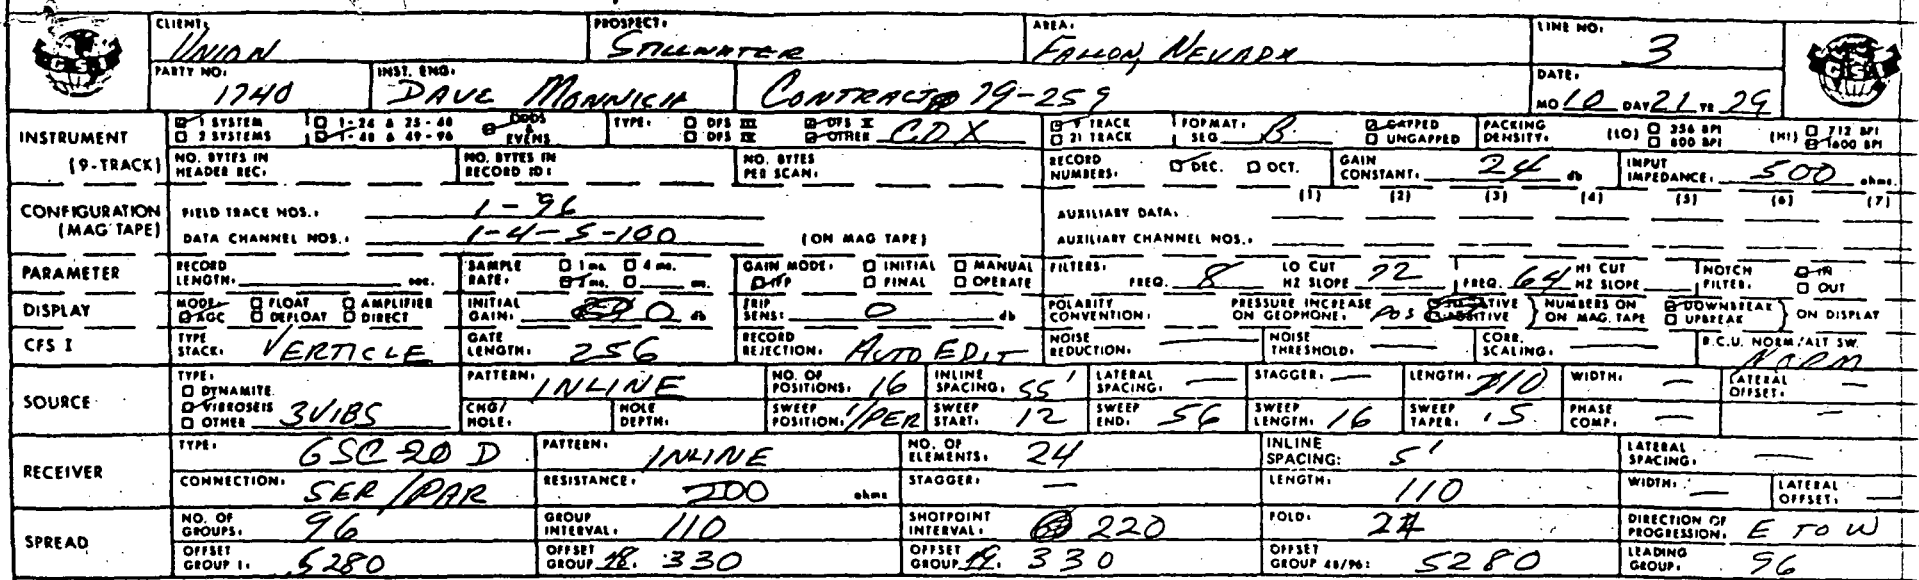 CLIENT: UNION PROSPECT: STILLWATER AREA: FALLON, NEVADA LINE NO: 3
PARTY NO: 1740 INST. ENG: DAVE MONNICH CONTRACT 79-259 DATE: MO 10 DAY 21 YR 79
GSI GSI
INSTRUMENT 1 SYSTEM 1-24 & 25-48 ODDS & TYPE: DFS III DFS V 9 TRACK FORMAT: GAPPED PACKING (LO) 356 BPI (HI) 712 BPI
2 SYSTEMS 1-48 & 49-96 EVENS DFS IV OTHER CDX 21 TRACK SEG B UNGAPPED DENSITY: 800 BPI 1600 BPI
(9-TRACK) NO. BYTES IN HEADER REC: NO. BYTES IN RECORD ID: NO. BYTES PER SCAN: RECORD NUMBERS: DEC. OCT. GAIN CONSTANT: 24 db INPUT IMPEDANCE: 500 ohms.
CONFIGURATION FIELD TRACE NOS.: 1-96 AUXILIARY DATA: (1) (2) (3) (4) (5) (6) (7)
(MAG TAPE) DATA CHANNEL NOS.: 1-4-5-100 (ON MAG TAPE) AUXILIARY CHANNEL NOS.:
PARAMETER RECORD LENGTH: sec. SAMPLE RATE: 1 ms. 4 ms. ms. GAIN MODE: INITIAL MANUAL IFP FINAL OPERATE FILTERS: FREQ. 8 LO CUT HZ SLOPE 22 FREQ. 64 HI CUT HZ SLOPE NOTCH FILTER: IN OUT
DISPLAY MODE: FLOAT AMPLIFIER AGC DEFLOAT DIRECT INITIAL GAIN: 0 db TRIP SENS: 0 db POLARITY CONVENTION: PRESSURE INCREASE ON GEOPHONE: POS NEGATIVE POSITIVE NUMBERS ON MAG. TAPE DOWNBREAK UPBREAK ON DISPLAY
CFS I TYPE STACK: VERTICLE GATE LENGTH: 256 RECORD REJECTION: AUTO EDIT NOISE REDUCTION: NOISE THRESHOLD: CORR. SCALING: R.C.U. NORM/ALT SW. NORM
SOURCE TYPE: DYNAMITE PATTERN: INLINE NO. OF POSITIONS: 16 INLINE SPACING: 55' LATERAL SPACING: — STAGGER: — LENGTH: 110 WIDTH: — LATERAL OFFSET: —
VIBROSEIS OTHER 3 VIBS CHG/HOLE: HOLE DEPTH: SWEEP POSITION: 1/PER SWEEP START: 12 SWEEP END: 56 SWEEP LENGTH: 16 SWEEP TAPER: .5 PHASE COMP: —
RECEIVER TYPE: GSC-20 D PATTERN: INLINE NO. OF ELEMENTS: 24 INLINE SPACING: 5' LATERAL SPACING: —
CONNECTION: SER/PAR RESISTANCE: 200 ohms STAGGER: — LENGTH: 110 WIDTH: — LATERAL OFFSET: —
SPREAD NO. OF GROUPS: 96 GROUP INTERVAL: 110 SHOTPOINT INTERVAL: 220 FOLD: 24 DIRECTION OF PROGRESSION: E TO W
OFFSET GROUP 1: 5280 OFFSET GROUP 48: 330 OFFSET GROUP 49: 330 OFFSET GROUP 48/96: 5280 LEADING GROUP: 96